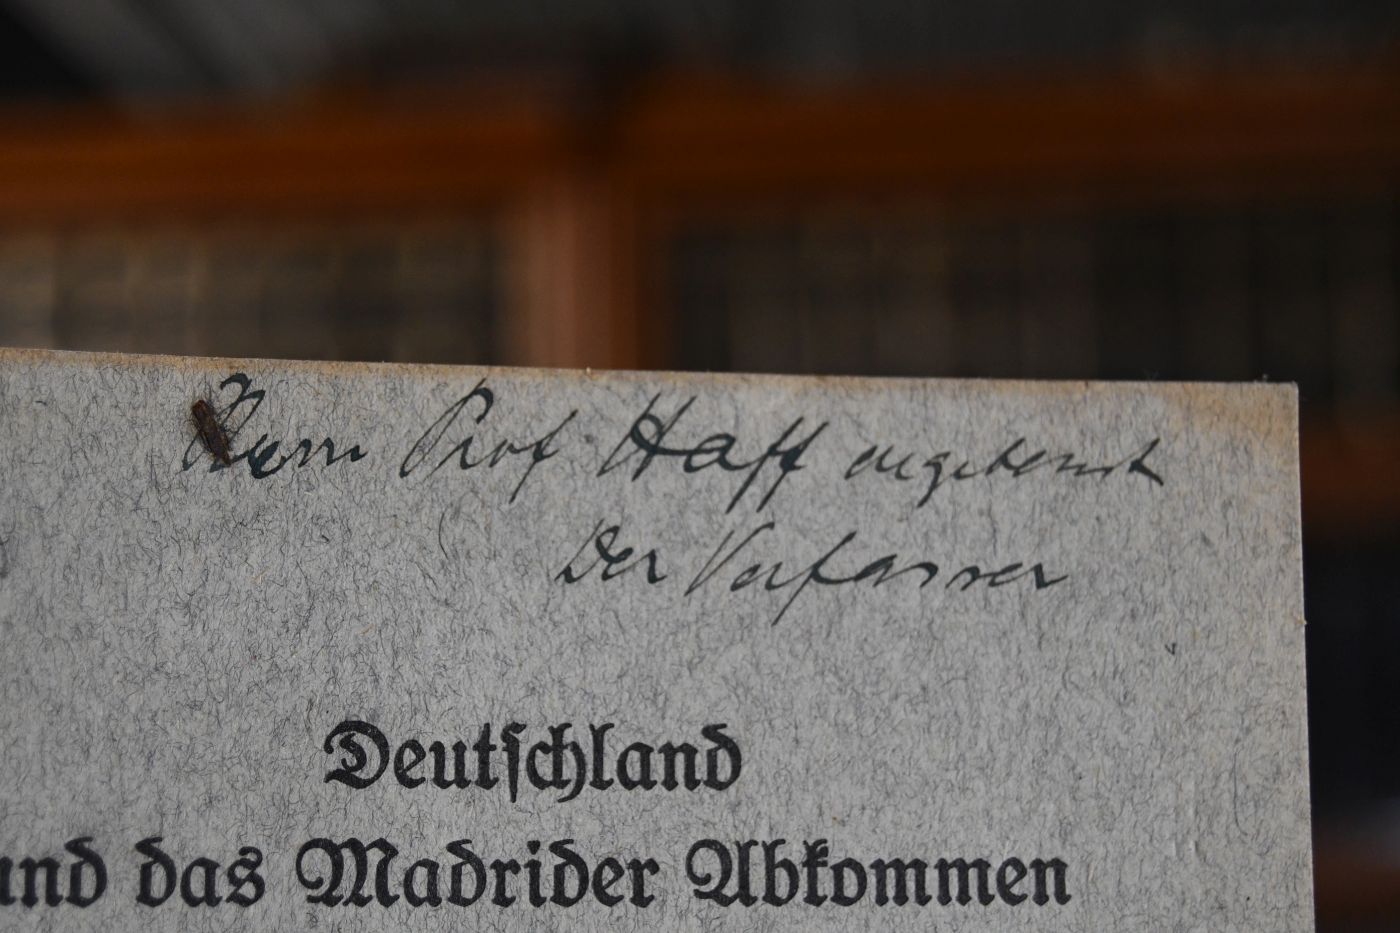 Herrn Prof Haff ergebenst
Der Verfasser
Deutschland
und das Madrider Abkommen